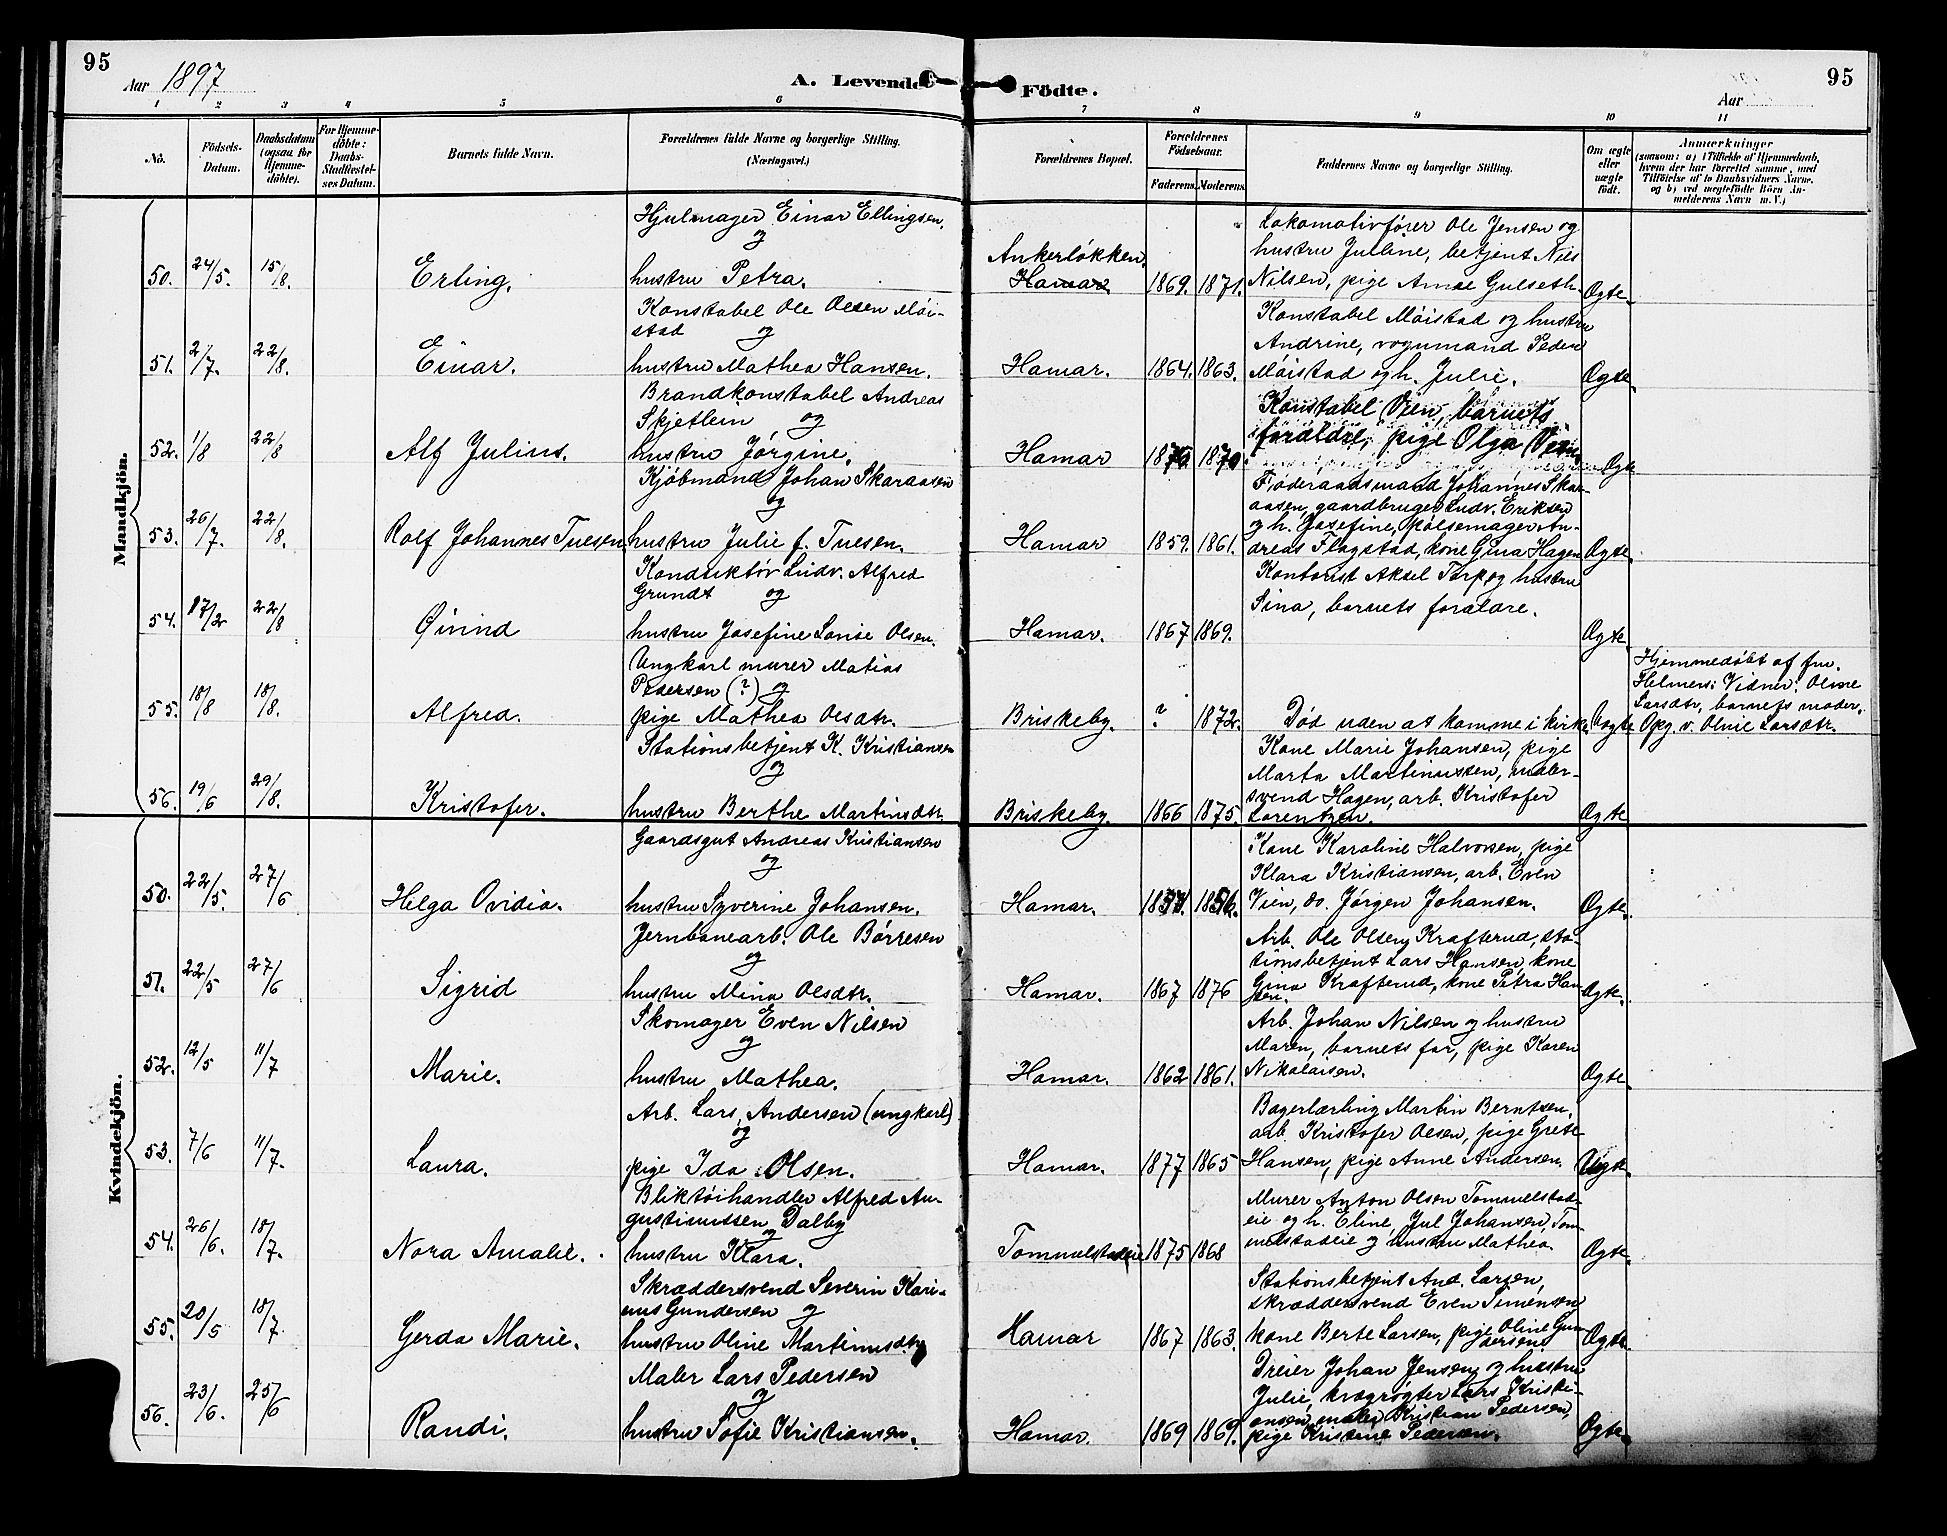 95
Aar 1897
A. Levende Födte.
Aar
95
1 2 3 4 5 6 7 8 9 10 11
No.
Födsels-Datum.
Daabsdatum (ogsaa for Hjemmedöbte).
For Hjemmedöbte: Daabs-Stadfæstelses Datum.
Barnets fulde Navn.
Forældrenes fulde Navne og borgerlige Stilling. (Næringsvei.)
Forældrenes Bopæl.
Forældrenes Födselsaar.
Faderens. Moderens.
Faddernes Navne og borgerlige Stilling.
Om ægte eller uægte födt.
Anmærkninger
(saasom: a) i Tilfælde af Hjemmedaab,
hvem der har forrettet samme, med
Tilföielse af to Daabsvidners Navne,
og b) ved uægtefödte Börn An-
melderens Navn m. V.)
Mandkjön.
50. 24/5. 15/8. Erling.
Hjulmager Einar Ellingsen,
og
hustru Petra.
Ankerløkken.
Hamar 1869. 1871.
Lokomotivfører Ole Jensen og
hustru Juline, betjent Nils
Nilsen, pige Anne Gulseth.
Ægte.
51. 2/7. 22/8. Einar.
Konstabel Ole Olsen Møi-
stad og
hustru Mathea Hansen.
Hamar. 1864. 1863.
Konstabel Møistad og hustru
Andrine, vognmand Peder
Møistad og h. Julie.
Ægte.
52. 1/8 22/8 Alf Julius.
Brandkonstabel Andreas
Skjetlein og
hustru Jørgine.
Hamar 1870
Konstabel barnets
forældre, pige Olga
Ægte
53. 26/7. 22/8. Rolf Johannes Tuesen.
Kjøbmand Johan Skaraasen
og
hustru Julie f. Tuesen.
Hamar 1859. 1861.
Føderaadsmand Johannes Skar-
aasen, gaardbruger Ludv. Eriksen
og h. Josefine, pølsemager An-
dreas Flagstad, kone Gina Hagen
Ægte.
54. 17/2 22/8 Øivind
Konduktør Ludv. Alfred
Grundt og
hustru Josefine Lovise Olsen.
Hamar. 1867 1869.
Kontorist Aksel Torp og hustru
Sina, barnets forældre.
Ægte
55. 18/8 18/8. Alfred.
Ungkarl murer Matias
Pedersen (?) og
pige Mathea Olsdtr.
Briskeby. ? 1872.
Død uden at komme i kirke.
Uægte
Hjemmedøbt af fru
Helmers: Vidner: Oline
Larsdtr, barnets moder.
Opg. v. Oline Larsdtr.
56. 19/6 29/8. Kristofer.
Stationsbetjent K. Kristiansen
og
hustru Berthe Martinsdtr.
Briskeby. 1866 1875.
Kone Marie Johansen, pige
Marta Martinussen, maler-
svend Hagen, arb. Kristofer
Lorentzen.
Ægte
Kvindekjön.
50. 22/5. 27/6 Helga Ovidia.
Gaardsgut Andreas Kristiansen
og
hustru Syverine Johansen.
Hamar. 1856.
Kone Karoline Halvorsen, pige
Klara Kristiansen, arb. Even
Vien, do. Jørgen Johansen.
Ægte.
51. 22/5 27/6 Sigrid
Jernbanearb. Ole Børresen
og
hustru Mina Olsdtr.
Hamar. 1867 1876
Arb. Ole Olsen Krafterud, sta-
tionsbetjent Lars Hansen, kone
Gina Krafterud, kone Petra Han-
sen.
Ægte.
52. 12/5 11/7 Marie.
Skomager Even Nilsen
og
hustru Mathea.
Hamar. 1862 1861.
Arb. Johan Nilsen og hustru
Maren, barnets far, pige Karen
Nikolaisen.
Ægte.
53. 7/6 11/7. Laura.
Arb. Lars Andersen (ungkarl)
og
pige Ida Olsen.
Hamar. 1877 1865
Bagerlærling Martin Berntsen,
arb. Kristofer Olsen, pige Grete
Hansen, pige Anne Andersen.
54. 26/6. 18/7. Nora Amalie.
Bliktøihandler Alfred Au-
gustinussen Dalby
og
hustru Klara.
Tommelstadeie 1875 1868
Murer Anton Olsen Tommelstad-
eie og h. Eline, Jul Johansen, Tom-
melstadeie og hustru Mathea.
Ægte.
55. 20/5 18/7. Gerda Marie.
Skræddersvend Severin Kari-
nus Gundersen og
hustru Oline Martinusdtr.
Hamar 1867 1863.
Stationsbetjent And. Larsen,
skræddersvend Even Simensen
kone Berte Larsen, pige Oline Gun-
dersen.
Ægte.
56. 23/6. 25/6 Randi.
Maler Lars Pedersen
og
hustru Sofie Kristiansen.
Hamar. 1869 1869.
Dreier Johan Jensen og hustru
Julie, Lars Kristi-
ansen, maler Kristian Pedersen,
pige Kristine Pedersen.
Ægte.